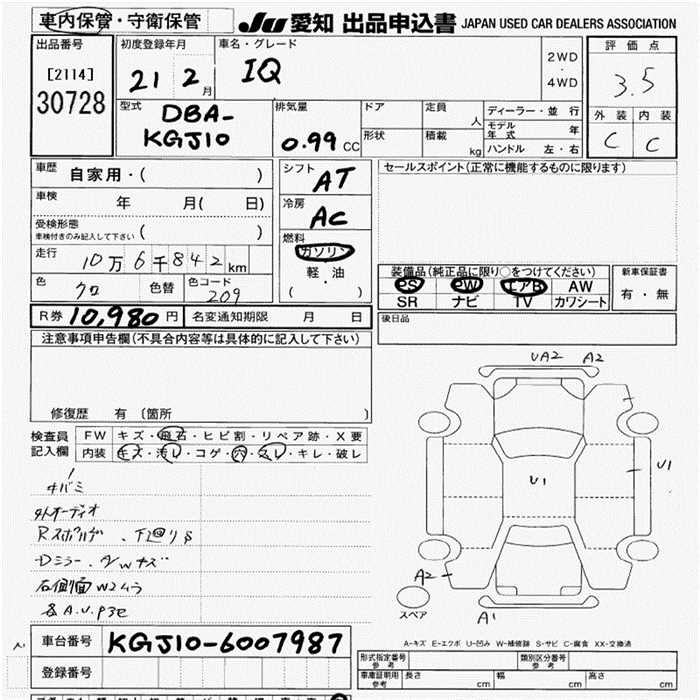 車内保管・守衛保管
JU 愛知 出品申込書 JAPAN USED CAR DEALERS ASSOCIATION
出品番号
[2114]
30728
初度登録年月
21 2 月
車名・グレード
IQ
2WD
・
4WD
評価点
3.5
外装 内装
C C
型式
DBA-
KGJ10
排気量
0.99 CC
ドア
形状
定員 人
積載 kg
ディーラー・並行
モデル年式 年
ハンドル 左・右
車歴 自家用・( )
車検 年 月( 日)
受検形態 ( )
車検付きのみ記入して下さい
走行 10万6千842 km
色 クロ 色替 色コード 209
シフト AT
冷房 AC
燃料
ガソリン
軽・油
( )
セールスポイント(正常に機能するものに限ります)
装備品(純正品に限り○をつけてください)
PS PW エアB AW
SR ナビ TV カワシート
新車保証書
有・無
R券 10,980 円 名変通知期限 月 日
後日品
注意事項申告欄(不具合内容等は具体的に記入して下さい)
修復歴 有 (箇所 )
検査員
記入欄
FW キズ・飛石・ヒビ割・リペア跡・X要
内装 キズ・汚レ・コゲ・穴・スレ・キレ・破レ
外オーディオ
Dミラー
右側面W2ムラ
UA2 A2
U1
U1
A2
A1
スペア
A-キズ E-エクボ U-凹み W-補修跡 S-サビ C-腐食 XX-交換済
車台番号 KGJ10-6007987
登録番号
形式指定番号 参考
類別区分番号 参考
車庫証明用 参考 長さ cm 幅 cm 高さ cm